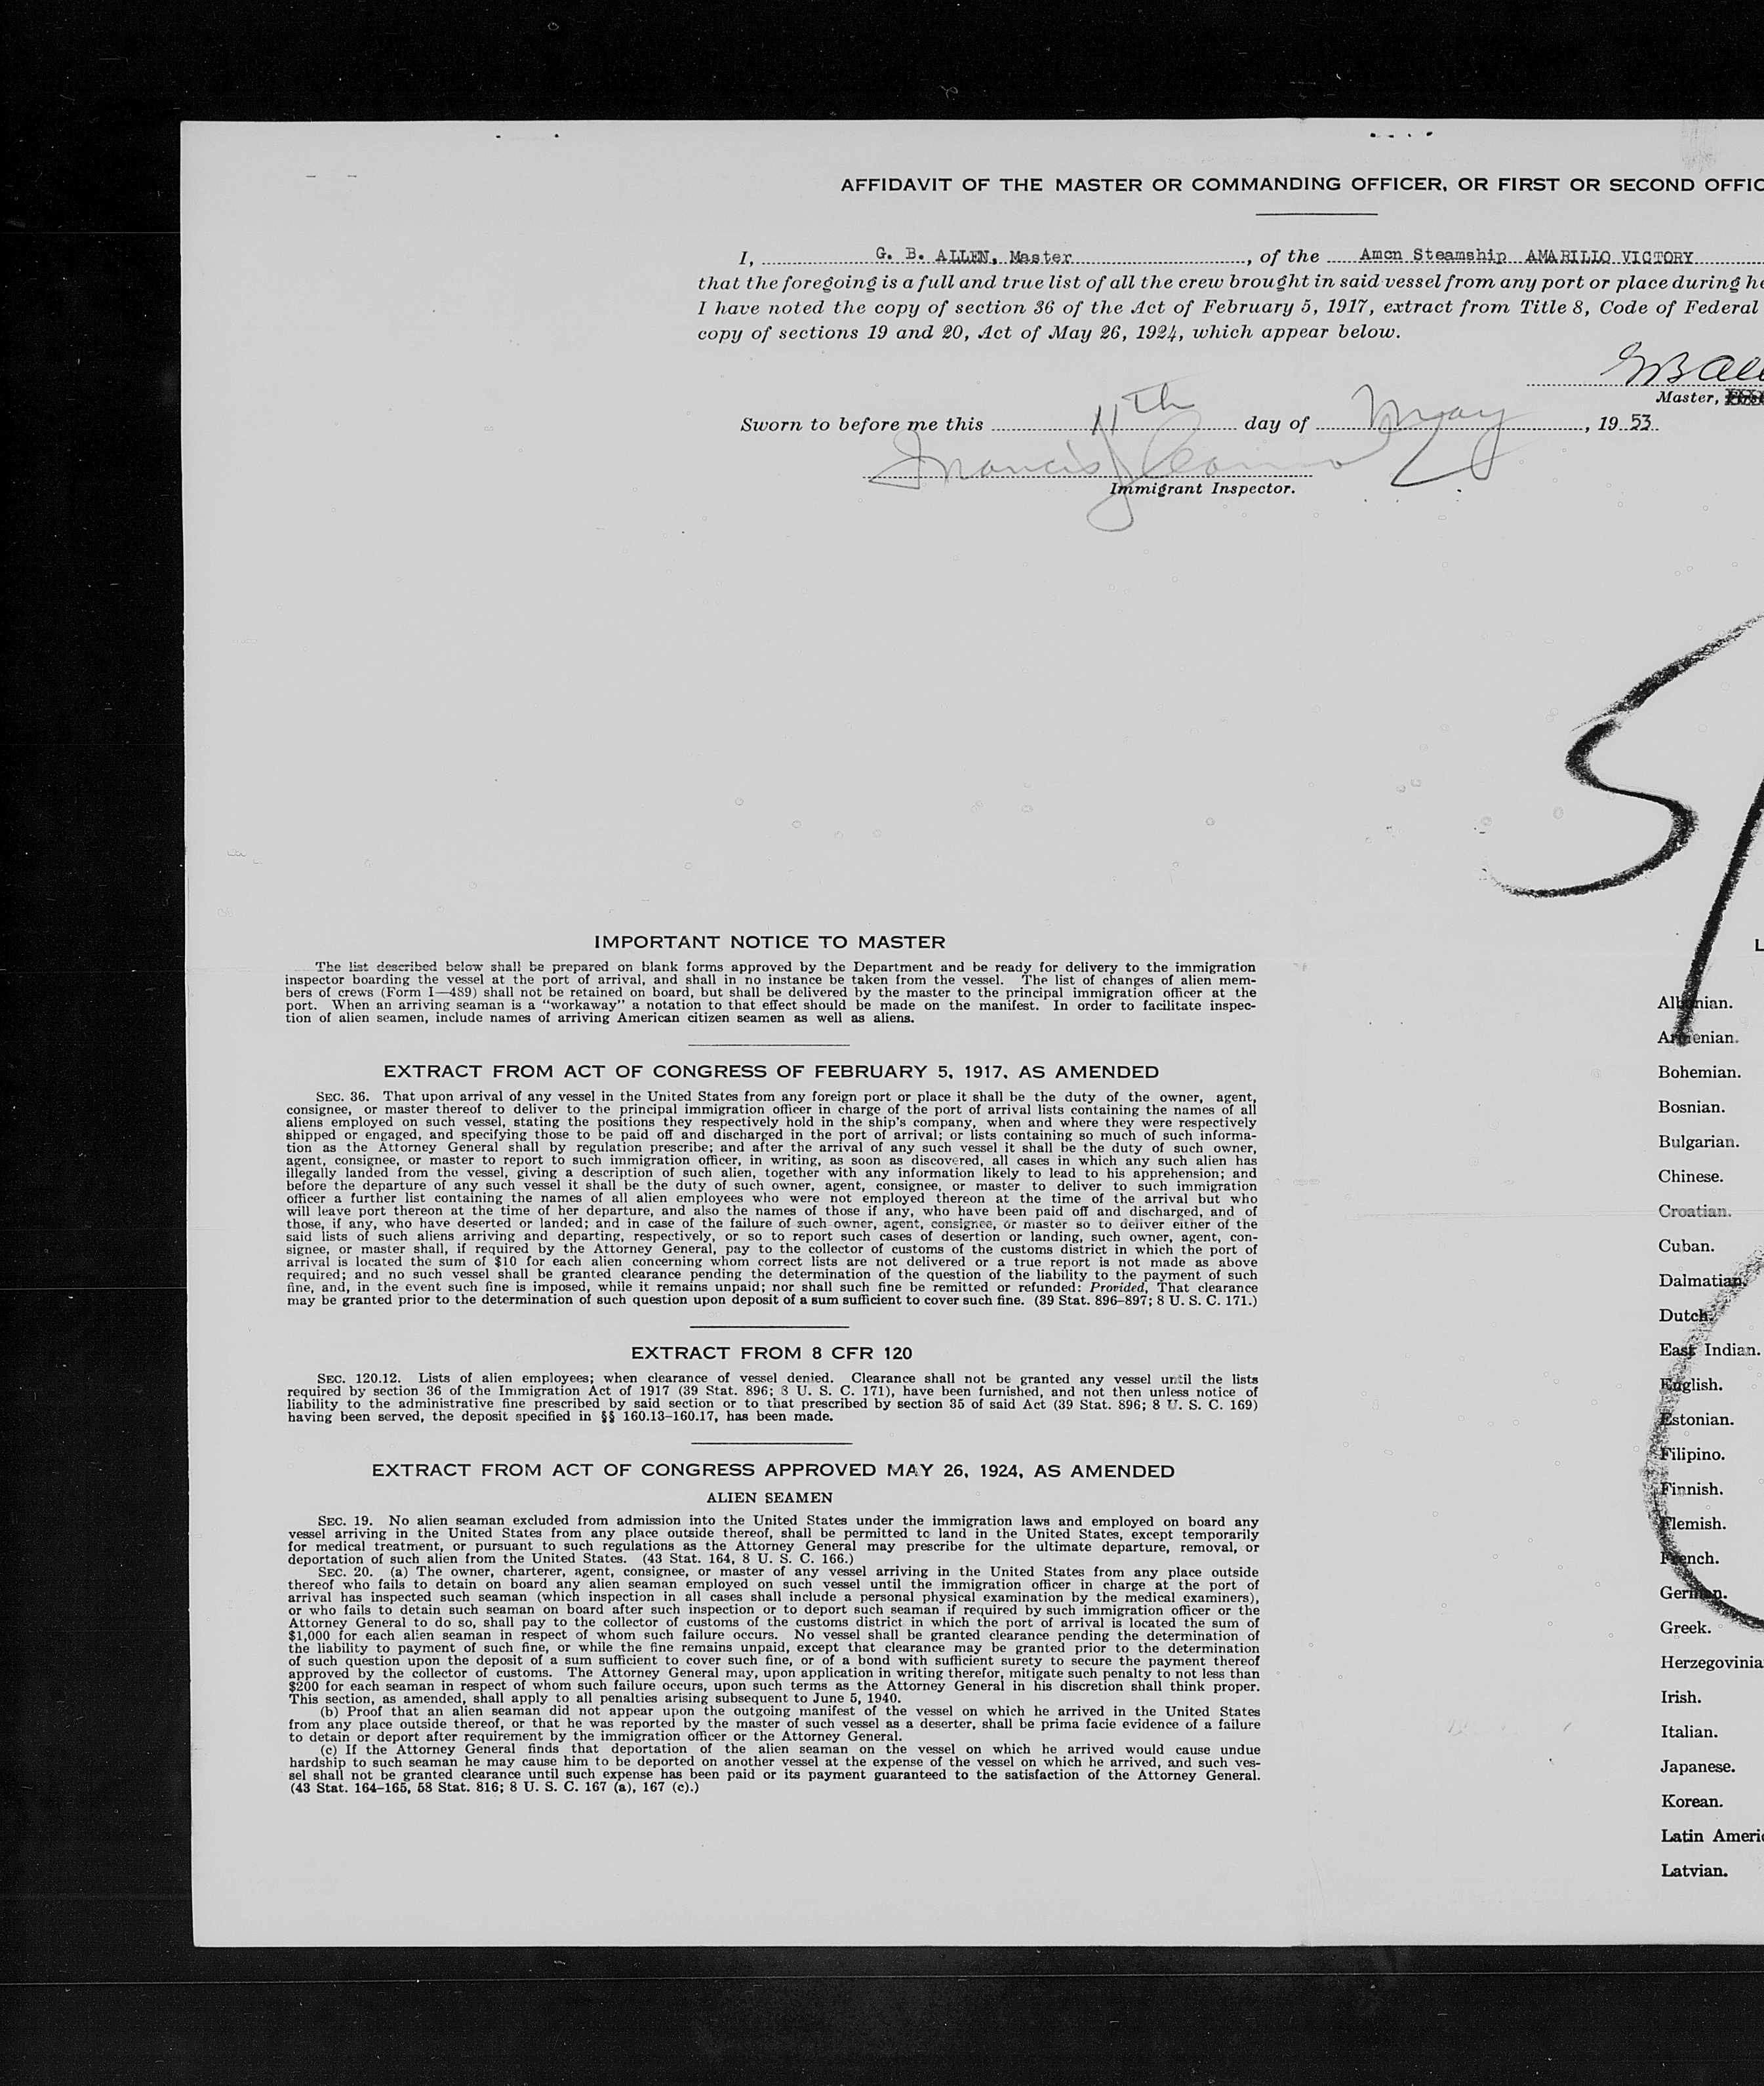 AFFIDAVIT OF THE MASTER OR COMMANDING OFFICER, OR FIRST OR SECOND OFFIC
I, G. B. ALLEN, Master, of the Amcn Steamship AMARILLO VICTORY
that the foregoing is a full and true list of all the crew brought in said vessel from any port or place during he
I have noted the copy of section 36 of the Act of February 5, 1917, extract from Title 8, Code of Federal
copy of sections 19 and 20, Act of May 26, 1924, which appear below.
GB Alle
Master,
Sworn to before me this 11th day of May, 1953.
Francis
Immigrant Inspector.
IMPORTANT NOTICE TO MASTER
The list described below shall be prepared on blank forms approved by the Department and be ready for delivery to the immigration
inspector boarding the vessel at the port of arrival, and shall in no instance be taken from the vessel. The list of changes of alien mem-
bers of crews (Form I—489) shall not be retained on board, but shall be delivered by the master to the principal immigration officer at the
port. When an arriving seaman is a "workaway" a notation to that effect should be made on the manifest. In order to facilitate inspec-
tion of alien seamen, include names of arriving American citizen seamen as well as aliens.
EXTRACT FROM ACT OF CONGRESS OF FEBRUARY 5, 1917, AS AMENDED
SEC. 36. That upon arrival of any vessel in the United States from any foreign port or place it shall be the duty of the owner, agent,
consignee, or master thereof to deliver to the principal immigration officer in charge of the port of arrival lists containing the names of all
aliens employed on such vessel, stating the positions they respectively hold in the ship's company, when and where they were respectively
shipped or engaged, and specifying those to be paid off and discharged in the port of arrival; or lists containing so much of such informa-
tion as the Attorney General shall by regulation prescribe; and after the arrival of any such vessel it shall be the duty of such owner,
agent, consignee, or master to report to such immigration officer, in writing, as soon as discovered, all cases in which any such alien has
illegally landed from the vessel, giving a description of such alien, together with any information likely to lead to his apprehension; and
before the departure of any such vessel it shall be the duty of such owner, agent, consignee, or master to deliver to such immigration
officer a further list containing the names of all alien employees who were not employed thereon at the time of the arrival but who
will leave port thereon at the time of her departure, and also the names of those if any, who have been paid off and discharged, and of
those, if any, who have deserted or landed; and in case of the failure of such owner, agent, consignee, or master so to deliver either of the
said lists of such aliens arriving and departing, respectively, or so to report such cases of desertion or landing, such owner, agent, con-
signee, or master shall, if required by the Attorney General, pay to the collector of customs of the customs district in which the port of
arrival is located the sum of $10 for each alien concerning whom correct lists are not delivered or a true report is not made as above
required; and no such vessel shall be granted clearance pending the determination of the question of the liability to the payment of such
fine, and, in the event such fine is imposed, while it remains unpaid; nor shall such fine be remitted or refunded: Provided, That clearance
may be granted prior to the determination of such question upon deposit of a sum sufficient to cover such fine. (39 Stat. 896–897; 8 U. S. C. 171.)
EXTRACT FROM 8 CFR 120
SEC. 120.12. Lists of alien employees; when clearance of vessel denied. Clearance shall not be granted any vessel until the lists
required by section 36 of the Immigration Act of 1917 (39 Stat. 896; 8 U. S. C. 171), have been furnished, and not then unless notice of
liability to the administrative fine prescribed by said section or to that prescribed by section 35 of said Act (39 Stat. 896; 8 U. S. C. 169)
having been served, the deposit specified in §§ 160.13–160.17, has been made.
EXTRACT FROM ACT OF CONGRESS APPROVED MAY 26, 1924, AS AMENDED
ALIEN SEAMEN
SEC. 19. No alien seaman excluded from admission into the United States under the immigration laws and employed on board any
vessel arriving in the United States from any place outside thereof, shall be permitted to land in the United States, except temporarily
for medical treatment, or pursuant to such regulations as the Attorney General may prescribe for the ultimate departure, removal, or
deportation of such alien from the United States. (43 Stat. 164, 8 U. S. C. 166.)
SEC. 20. (a) The owner, charterer, agent, consignee, or master of any vessel arriving in the United States from any place outside
thereof who fails to detain on board any alien seaman employed on such vessel until the immigration officer in charge at the port of
arrival has inspected such seaman (which inspection in all cases shall include a personal physical examination by the medical examiners),
or who fails to detain such seaman on board after such inspection or to deport such seaman if required by such immigration officer or the
Attorney General to do so, shall pay to the collector of customs of the customs district in which the port of arrival is located the sum of
$1,000 for each alien seaman in respect of whom such failure occurs. No vessel shall be granted clearance pending the determination of
the liability to payment of such fine, or while the fine remains unpaid, except that clearance may be granted prior to the determination
of such question upon the deposit of a sum sufficient to cover such fine, or of a bond with sufficient surety to secure the payment thereof
approved by the collector of customs. The Attorney General may, upon application in writing therefor, mitigate such penalty to not less than
$200 for each seaman in respect of whom such failure occurs, upon such terms as the Attorney General in his discretion shall think proper.
This section, as amended, shall apply to all penalties arising subsequent to June 5, 1940.
(b) Proof that an alien seaman did not appear upon the outgoing manifest of the vessel on which he arrived in the United States
from any place outside thereof, or that he was reported by the master of such vessel as a deserter, shall be prima facie evidence of a failure
to detain or deport after requirement by the immigration officer or the Attorney General.
(c) If the Attorney General finds that deportation of the alien seaman on the vessel on which he arrived would cause undue
hardship to such seaman he may cause him to be deported on another vessel at the expense of the vessel on which he arrived, and such ves-
sel shall not be granted clearance until such expense has been paid or its payment guaranteed to the satisfaction of the Attorney General.
(43 Stat. 164–165, 58 Stat. 816; 8 U. S. C. 167 (a), 167 (c).)
L
Albanian.
Armenian.
Bohemian.
Bosnian.
Bulgarian.
Chinese.
Croatian.
Cuban.
Dalmatian.
Dutch.
East Indian.
English.
Estonian.
Filipino.
Finnish.
Flemish.
French.
German.
Greek.
Herzegovinia
Irish.
Italian.
Japanese.
Korean.
Latin Americ
Latvian.